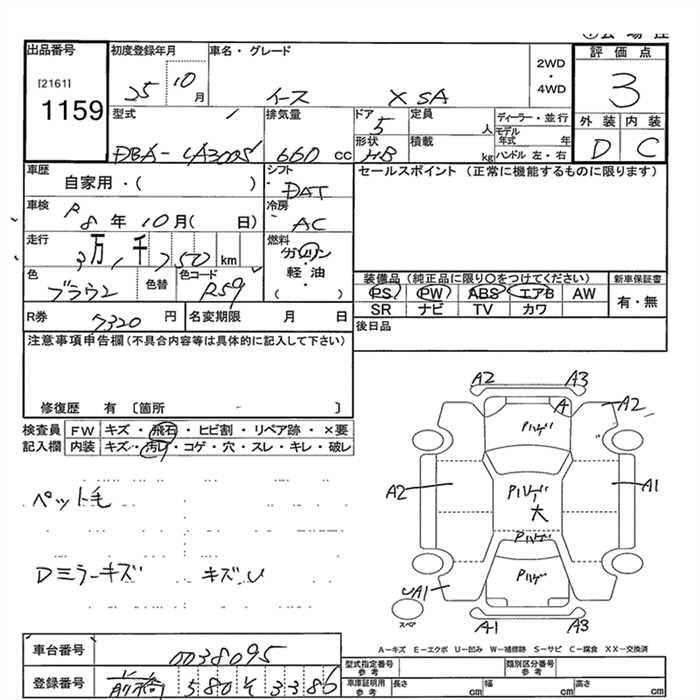 出品番号
[2161]
1159
初度登録年月
25 10 月
車名・グレード
イース X SA
2WD
・
4WD
評価点
3
外装 内装
D C
型式
DBA-LA300S
排気量
660 cc
ドア
5
形状
HB
定員
人
積載
kg
ディーラー・並行
モデル年式 年
ハンドル 左・右
車歴
自家用・( )
シフト
DAT
セールスポイント (正常に機能するものに限ります)
車検
R8 年 10 月( 日)
冷房
AC
走行
3 万 1 千 750 km
燃料
ガソリン
軽・油
( )
色
ブラウン
色替
色コード
R59
装備品(純正品に限り〇をつけてください)
PS PW ABS エアB AW
SR ナビ TV カワ
新車保証書
有・無
R券 7320 円
名変期限 月 日
後日品
注意事項申告欄(不具合内容等は具体的に記入して下さい)
修復歴 有 [箇所 - ]
検査員
記入欄
FW キズ・飛石・ヒビ割・リペア跡・×要
内装 キズ・汚レ・コゲ・穴・スレ・キレ・破レ
ペット毛
Dミラーキズ キズU
A2 A3
A A2
Pハゲ
A2 Pハゲ A1
大
Pハゲ
Pハゲ
UA1
スペア
A1 A3
A-キズ E-エクボ U-凹み W-補修跡 S-サビ C-腐食 XX-交換済
車台番号
0038095
登録番号
前橋 580 そ 3386
型式指定番号
参考
類別区分番号
参考
車庫証明用
参考
長さ cm 幅 cm 高さ cm